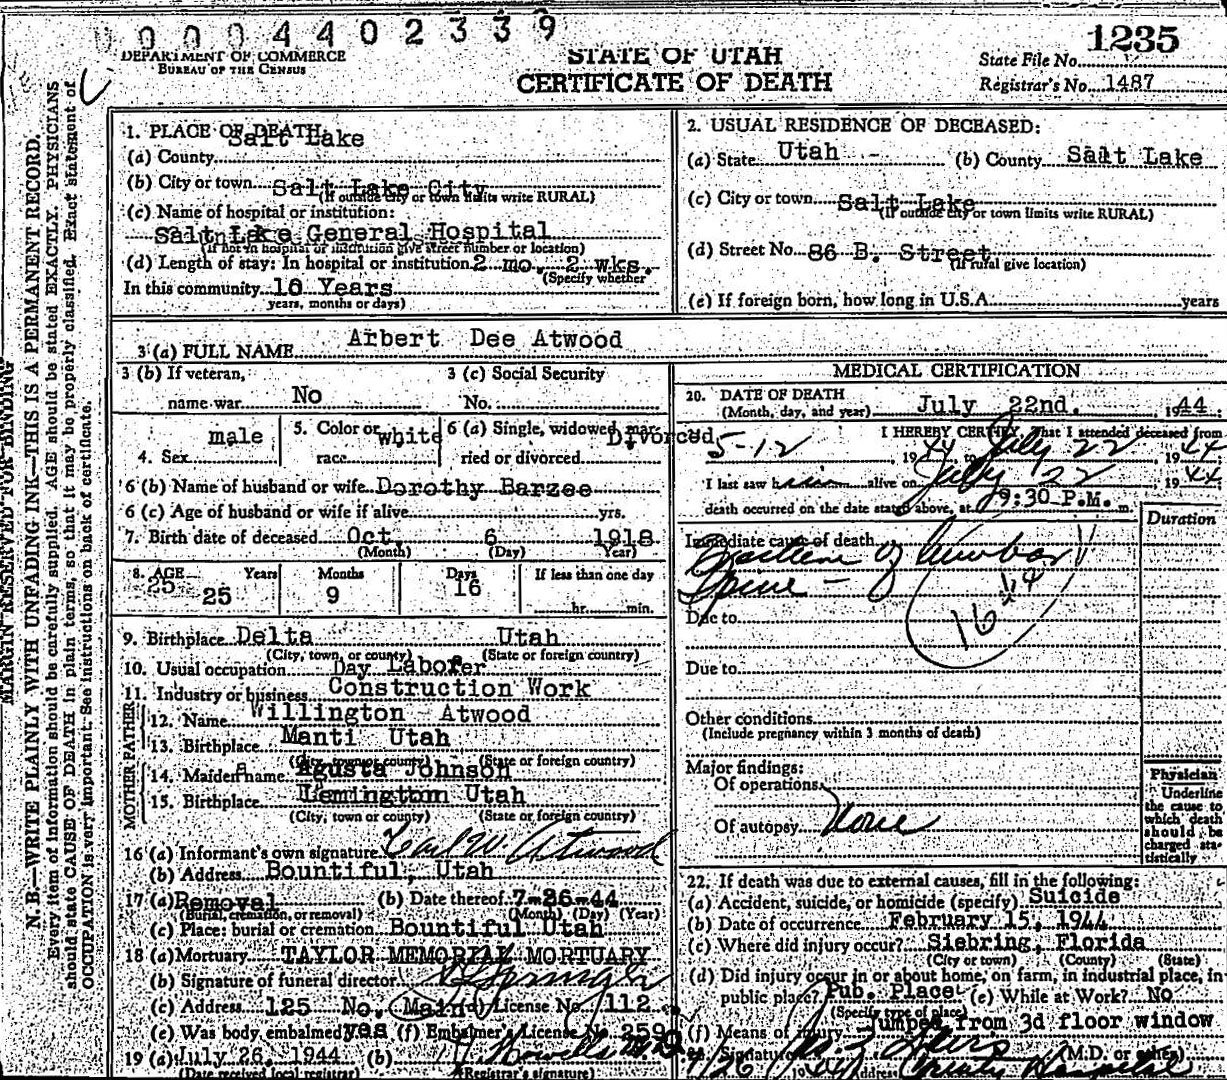 0 0 0 4 4 0 2 3 3 9
DEPARTMENT OF COMMERCE
BUREAU OF THE CENSUS
STATE OF UTAH
CERTIFICATE OF DEATH
1235
State File No.
Registrar's No. 1487
MARGIN RESERVED FOR BINDING
N. B.—WRITE PLAINLY WITH UNFADING INK—THIS IS A PERMANENT RECORD.
Every item of information should be carefully supplied. AGE should be stated EXACTLY. PHYSICIANS
should state CAUSE OF DEATH in plain terms, so that it may be properly classified. Exact statement of
OCCUPATION is very important. See instructions on back of certificate.
1. PLACE OF DEATH:
(a) County Salt Lake
(b) City or town Salt Lake City
(If outside city or town limits write RURAL)
(c) Name of hospital or institution:
Salt Lake General Hospital
(If not in hospital or institution give street number or location)
(d) Length of stay: In hospital or institution 2 mo. 2 wks.
(Specify whether
In this community 10 Years
years, months or days)
2. USUAL RESIDENCE OF DECEASED:
(a) State Utah (b) County Salt Lake
(c) City or town Salt Lake
(If outside city or town limits write RURAL)
(d) Street No. 86 B. Street
(If rural give location)
(e) If foreign born, how long in U.S.A. years
3 (a) FULL NAME Arbert Dee Atwood
3 (b) If veteran,
name war No
3 (c) Social Security
No.
4. Sex male
5. Color or race white
6 (a) Single, widowed, married or divorced Divorced
6 (b) Name of husband or wife Dorothy Barzee
6 (c) Age of husband or wife if alive yrs.
7. Birth date of deceased Oct. 6 1918
(Month) (Day) (Year)
8. AGE Years Months Days If less than one day
25 25 9 16 hr. min.
9. Birthplace Delta Utah
(City, town, or county) (State or foreign country)
10. Usual occupation Day Laborer
11. Industry or business Construction Work
FATHER
12. Name Willington Atwood
13. Birthplace Manti Utah
(City, town or county) (State or foreign country)
MOTHER
14. Maiden name Agusta Johnson
15. Birthplace Lemington Utah
(City, town or county) (State or foreign country)
16 (a) Informant's own signature Atwood
(b) Address Bountiful, Utah
17 (a) Removal (b) Date thereof 7-26-44
(Burial, cremation, or removal) (Month) (Day) (Year)
(c) Place: burial or cremation Bountiful Utah
18 (a) Mortuary TAYLOR MEMORIAL MORTUARY
(b) Signature of funeral director
(c) Address 125 No. Main (d) License No. 112
(e) Was body embalmed yes (f) Embalmer's License No. 259
19 (a) July 26, 1944 (b)
(Date received local registrar) (Registrar's signature)
MEDICAL CERTIFICATION
20. DATE OF DEATH
(Month, day, and year) July 22nd. 1944
I HEREBY CERTIFY, That I attended deceased from
5-12, 1944 to July 22 1944
I last saw him alive on July 22, 1944
death occurred on the date stated above, at 9:30 P.M. m.
Duration
Immediate cause of death
Fracture of lumbar
Spine —
16
Due to
Due to
Other conditions
(Include pregnancy within 3 months of death)
Major findings:
Of operations
Of autopsy None
Physician
Underline
the cause to
which death
should be
charged sta-
tistically
22. If death was due to external causes, fill in the following:
(a) Accident, suicide, or homicide (specify) Suicide
(b) Date of occurrence February 15, 1944
(c) Where did injury occur? Siebring, Florida
(City or town) (County) (State)
(d) Did injury occur in or about home, on farm, in industrial place, in
public place? Pub. Place (e) While at Work? No
(Specify type of place)
(f) Means of injury Jumped from 3d floor window
Signature (M.D. or other)
7/26 Address County Hospital